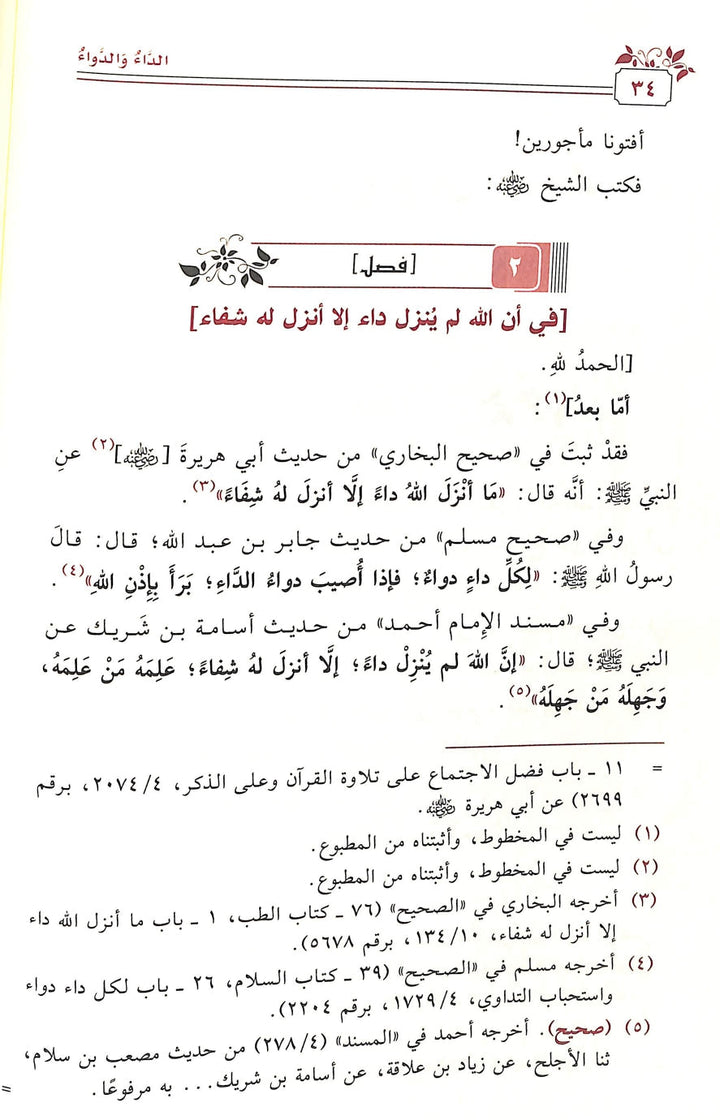 الدَّاءُ وَالدَّواءُ
٣٤
أفتونا مأجورين!
فكتب الشيخ رضي الله عنه:
٢
[فصل]
[في أن الله لم يُنزل داء إلا أنزل له شفاء]
[الحمدُ للهِ.
أمّا بعدُ](١):
فقدْ ثبتَ في «صحيح البخاري» من حديث أبي هريرةَ [رضي الله عنه](٢) عنِ
النبيِّ ﷺ: أنَّه قال: «مَا أَنْزَلَ اللهُ داءً إلَّا أنزلَ لهُ شِفَاءً»(٣).
وفي «صحيح مسلم» من حديث جابر بن عبد الله؛ قال: قالَ
رسولُ اللهِ ﷺ: «لِكُلِّ داءٍ دواءٌ؛ فإذا أُصيبَ دواءُ الدَّاءِ؛ بَرَأَ بِإِذْنِ اللهِ»(٤).
وفي «مسند الإمام أحمد» من حديث أسامة بن شَريك عن
النبي ﷺ؛ قال: «إنَّ اللهَ لم يُنْزِلْ داءً؛ إلَّا أنزلَ لهُ شِفاءً؛ عَلِمَهُ مَنْ عَلِمَهُ،
وَجَهِلَهُ مَنْ جَهِلَهُ»(٥).
= ١١ ـ باب فضل الاجتماع على تلاوة القرآن وعلى الذكر، ٢٠٧٤/٤، برقم
٢٦٩٩) عن أبي هريرة رضي الله عنه.
(١) ليست في المخطوط، وأثبتناه من المطبوع.
(٢) ليست في المخطوط، وأثبتناه من المطبوع.
(٣) أخرجه البخاري في «الصحيح» (٧٦ ـ كتاب الطب، ١ ـ باب ما أنزل الله داء
إلا أنزل له شفاء، ١٣٤/١٠، برقم ٥٦٧٨).
(٤) أخرجه مسلم في «الصحيح» (٣٩ ـ كتاب السلام، ٢٦ ـ باب لكل داء دواء
واستحباب التداوي، ١٧٢٩/٤، برقم ٢٢٠٤).
(٥) (صحيح). أخرجه أحمد في «المسند» (٢٧٨/٤) من حديث مصعب بن سلام،
ثنا الأجلح، عن زياد بن علاقة، عن أسامة بن شريك... به مرفوعًا. =